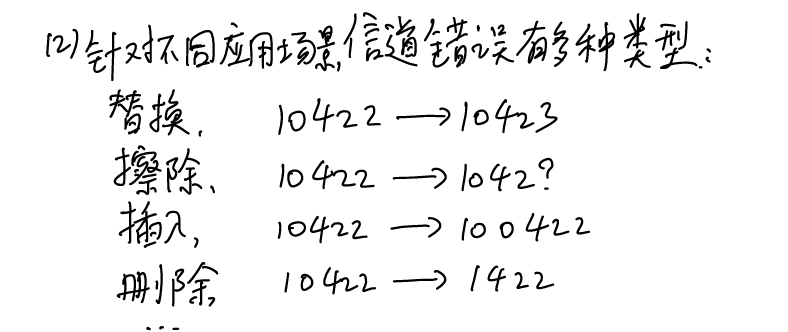 (2) 针对不同应用场景,信道错误有多种类型:
替换, 10422 → 10423
擦除, 10422 → 1042?
插入, 10422 → 100422
删除, 10422 → 1422
...